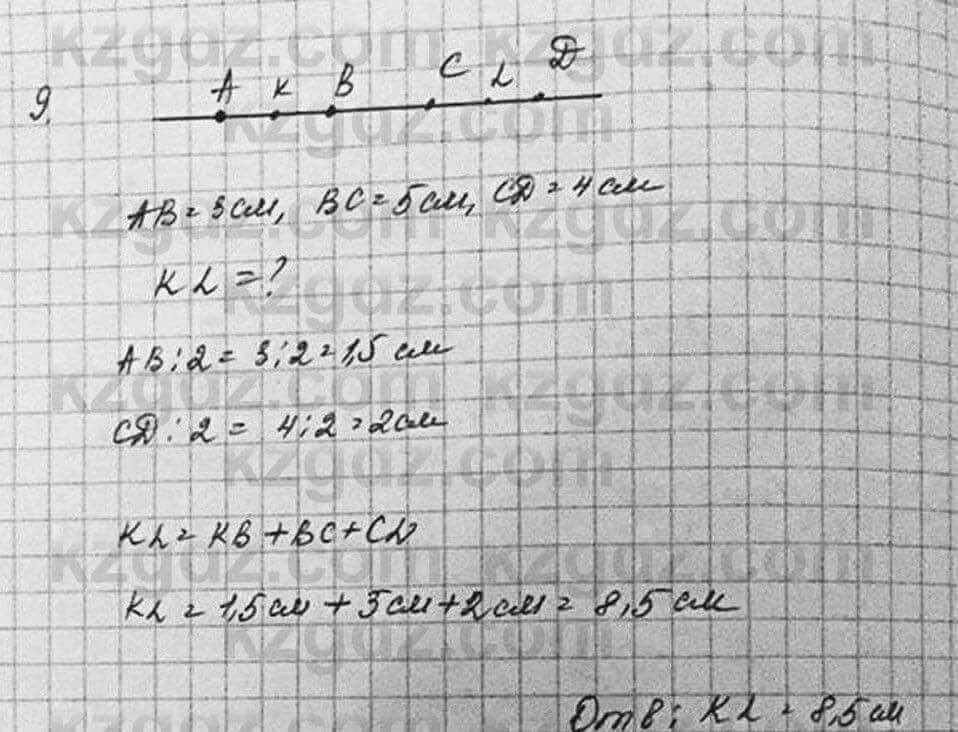 kzgdz.com kzgdz.com
9. A K B C L D
kzgdz.com
AB = 3 см, BC = 5 см, CD = 4 см
kzgdz.com kzgdz.com
KL = ?
kzgdz.com
AB : 2 = 3 : 2 = 1,5 см
kzgdz.com kzgdz.com
CD : 2 = 4 : 2 = 2 см
kzgdz.com
KL = KB + BC + CL
kzgdz.com kzgdz.com
KL = 1,5 см + 5 см + 2 см = 8,5 см
kzgdz.com
Отв: KL = 8,5 см
kzgdz.com kzgdz.com